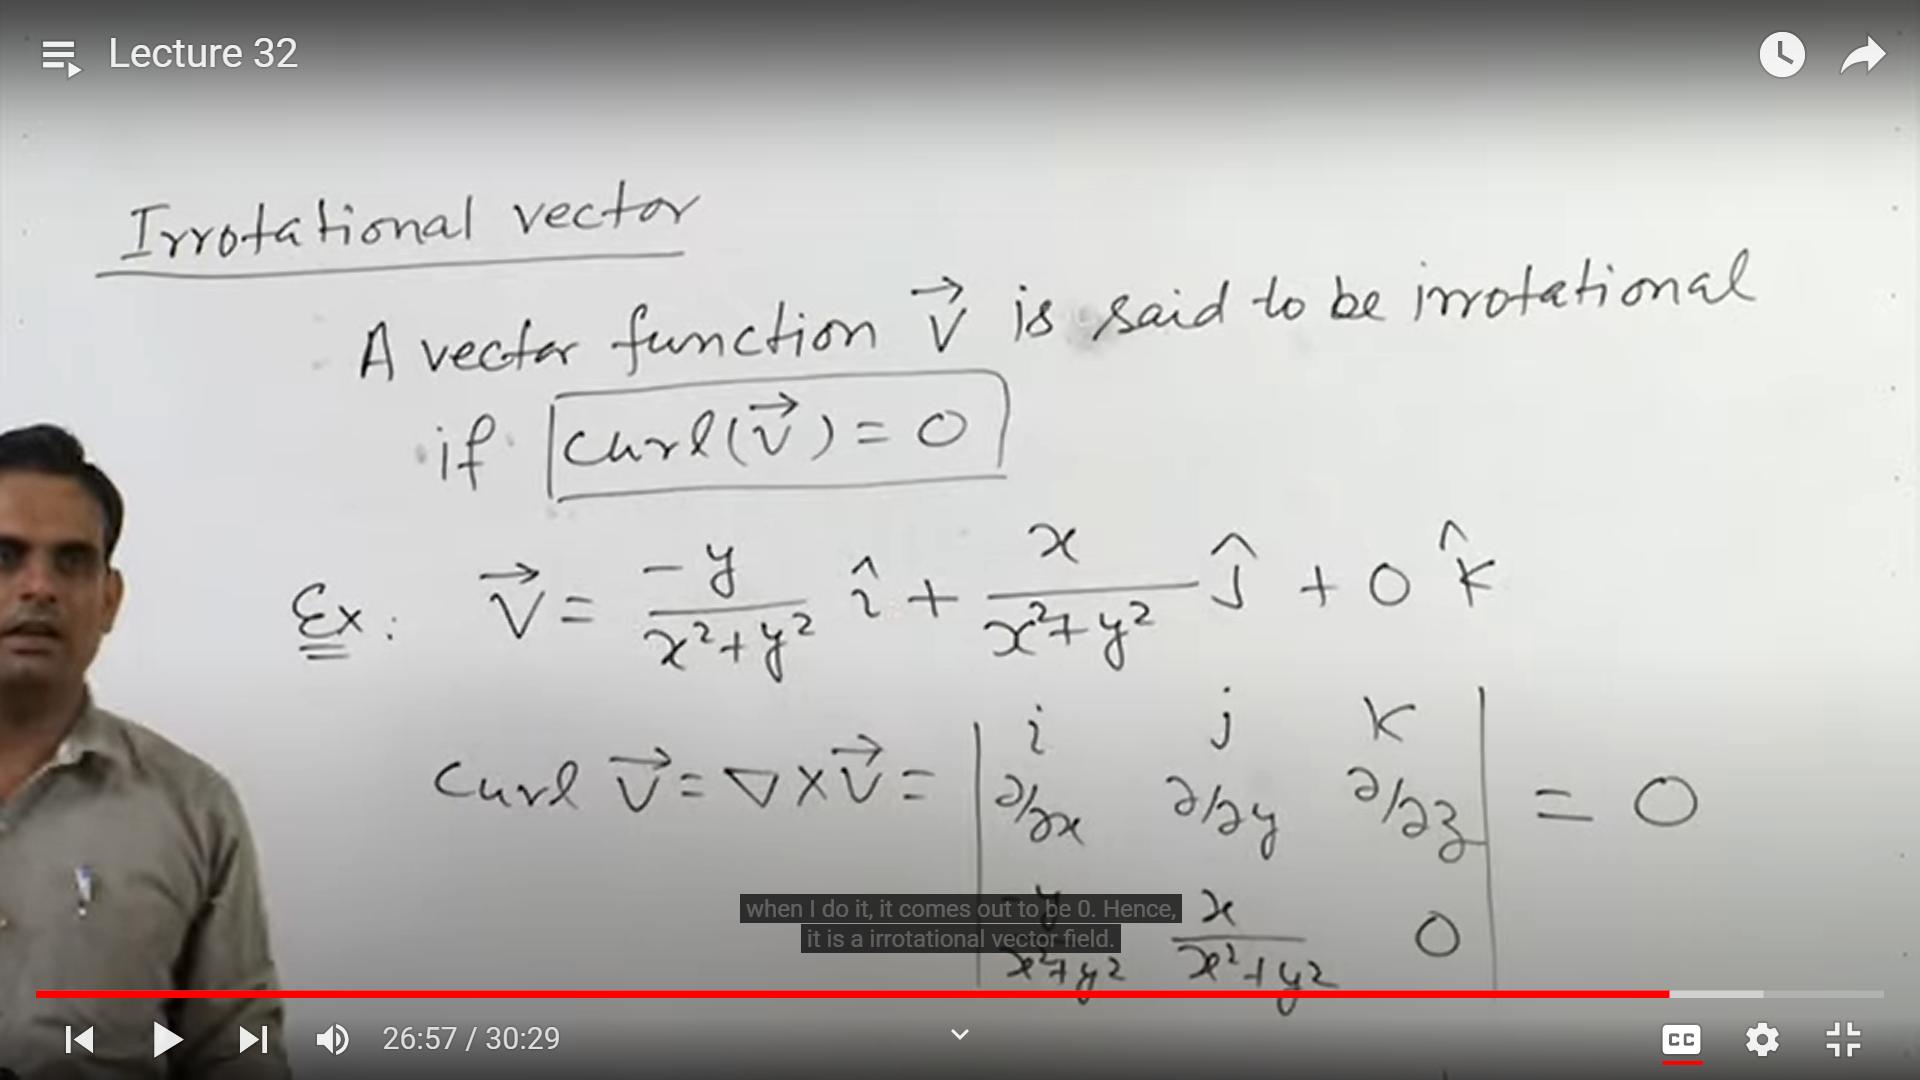 Lecture 32
Irrotational vector
A vector function V⃗ is said to be irrotational
if curl(V⃗) = 0
Ex: V⃗ = -y/(x²+y²) î + x/(x²+y²) ĵ + 0 k̂
Curl V⃗ = ∇×V⃗ = | i j k | = 0
| ∂/∂x ∂/∂y ∂/∂z |
| -y/(x²+y²) x/(x²+y²) 0 |
when I do it, it comes out to be 0. Hence,
it is a irrotational vector field.
26:57 / 30:29
CC